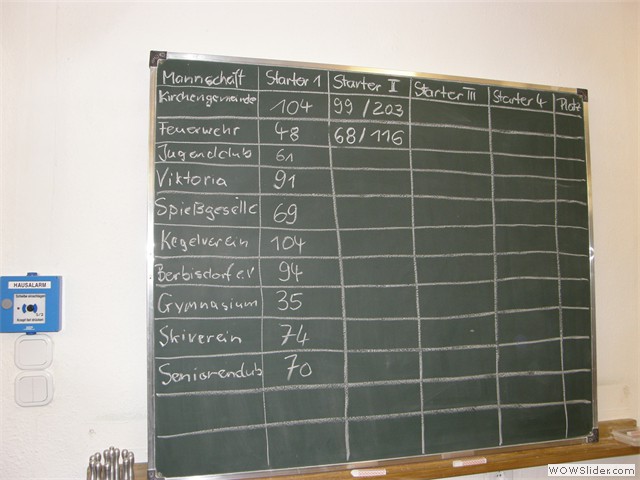 Mannschaft Starter 1 Starter II Starter III Starter 4 Platz
Kirchengemeinde 104 99 / 203
Feuerwehr 48 68 / 116
Jugendclub 61
Viktoria 91
Spießgeselle 69
Kegelverein 104
Berbisdorf e.V 94
Gymnasium 35
Skiverein 74
Seniorenclub 70
HAUSALARM
Scheibe einschlagen
Knopf tief drücken
WOWSlider.com